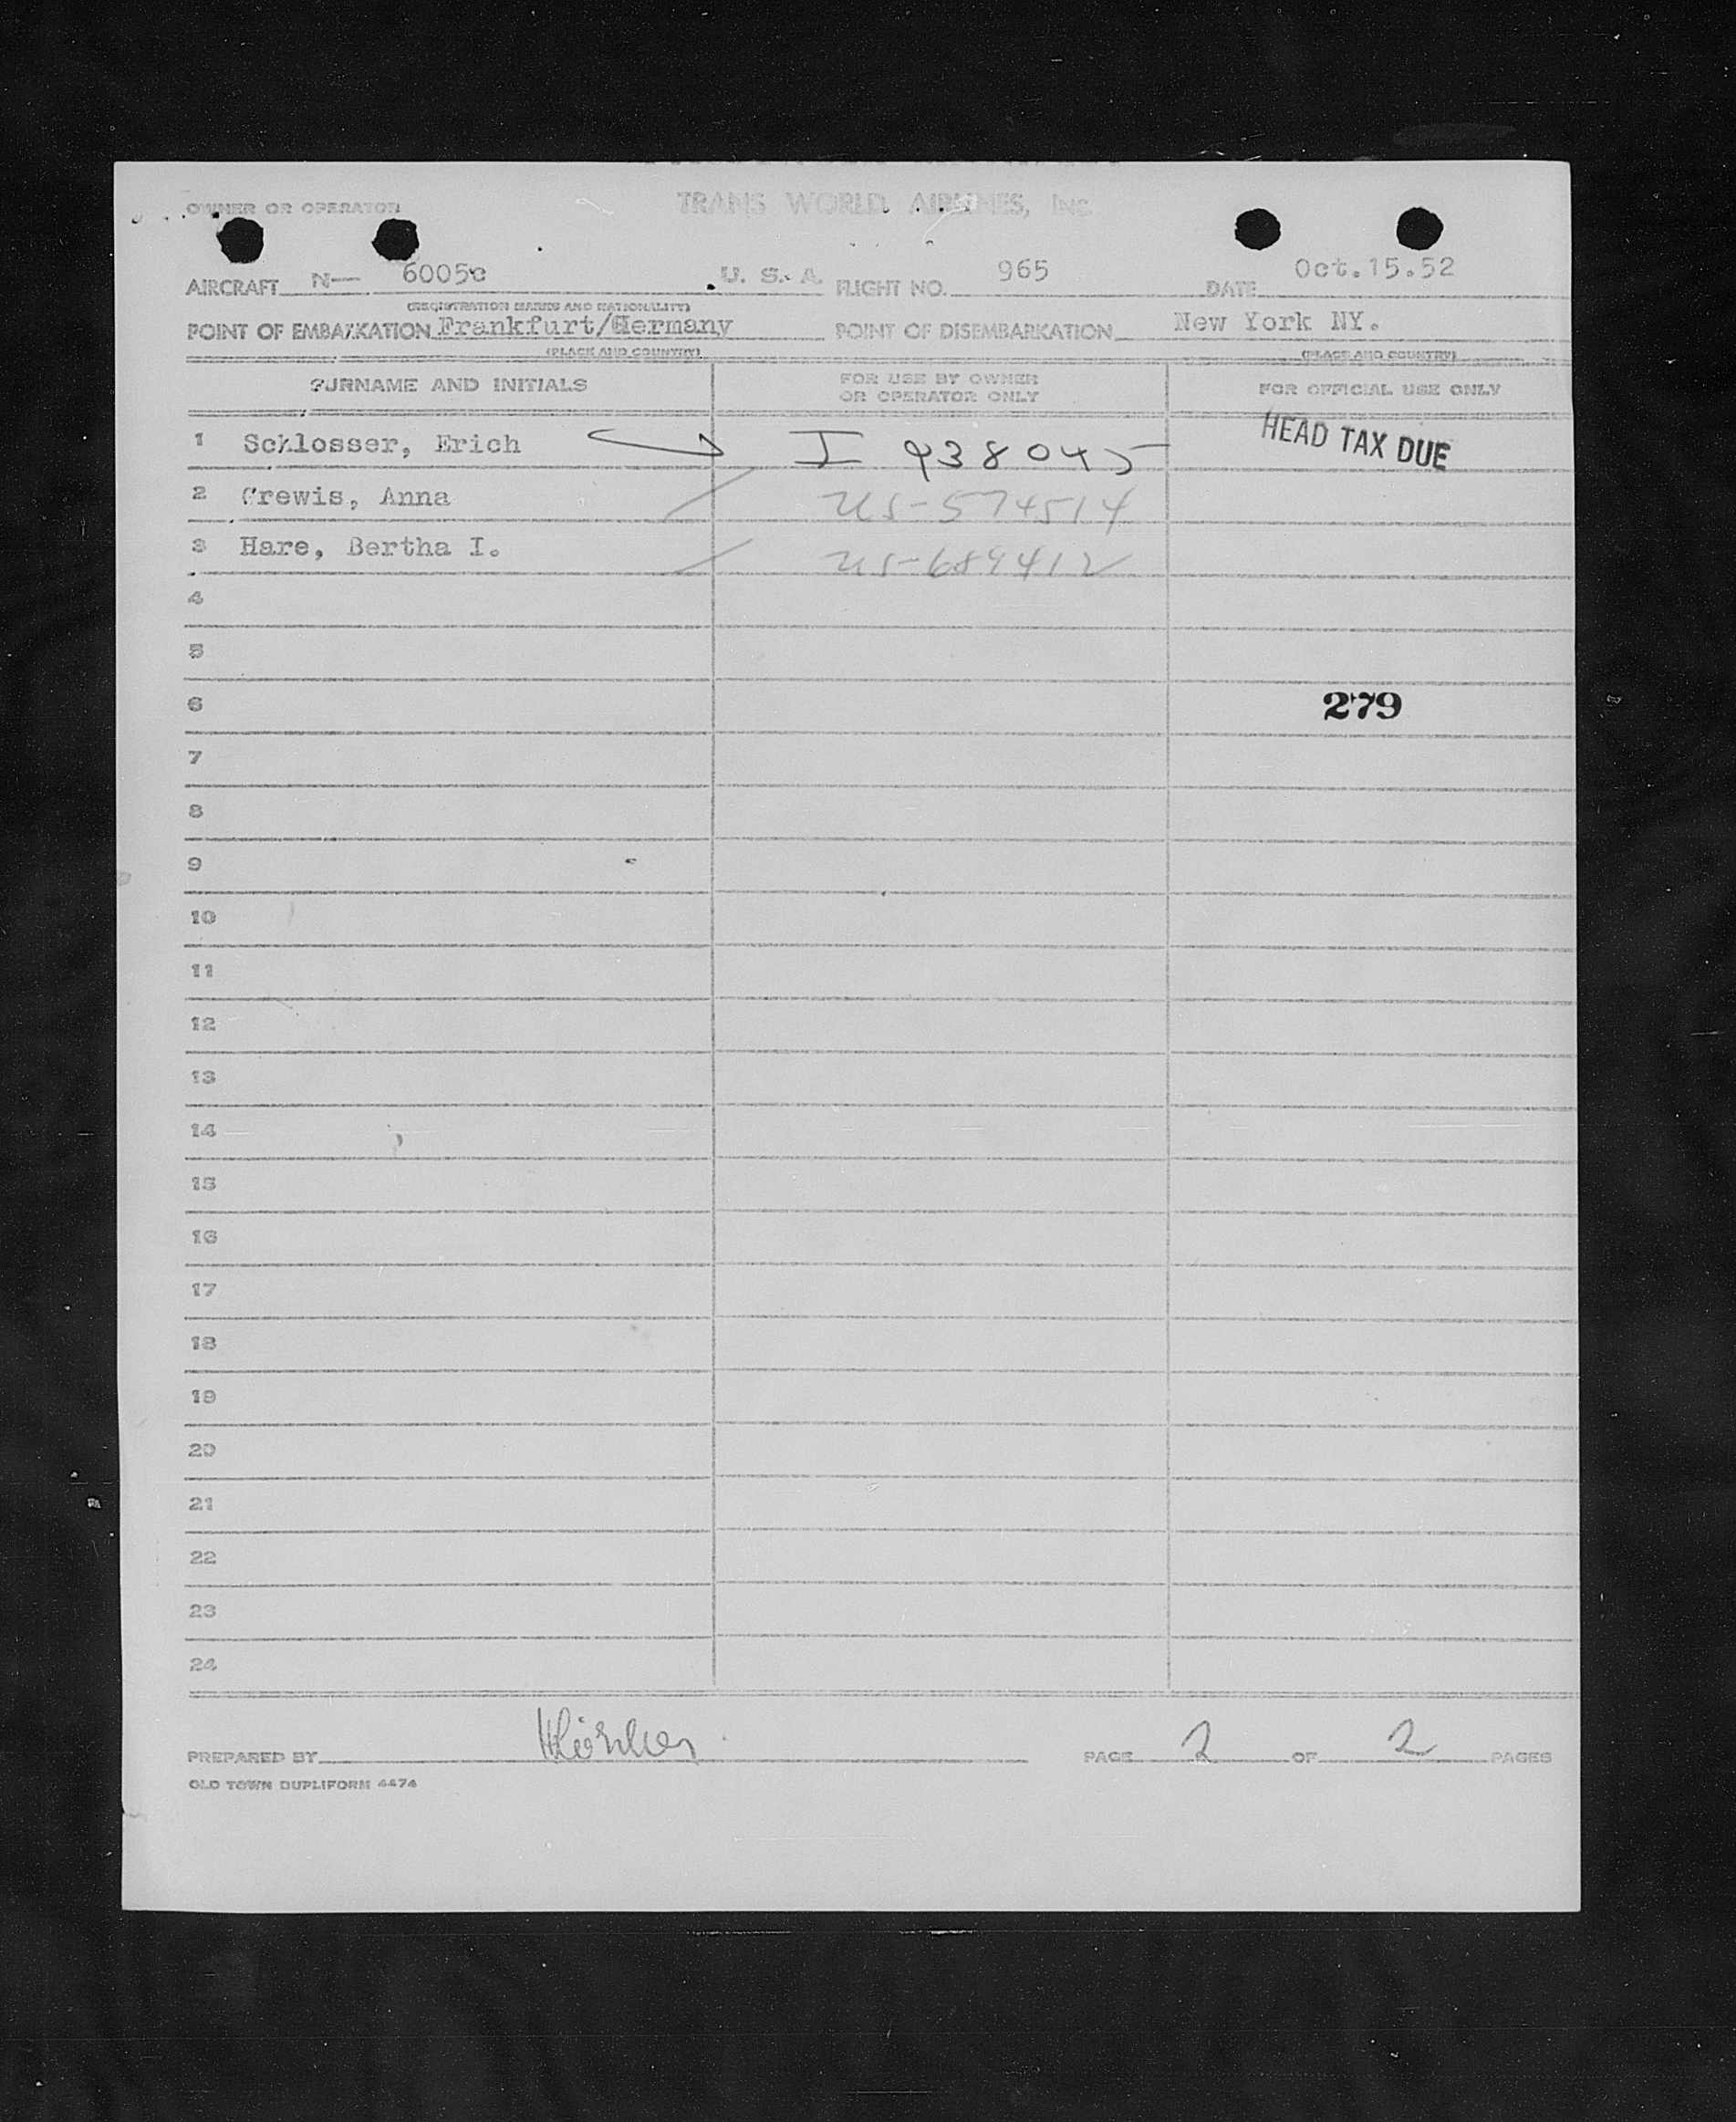 OWNER OR OPERATOR TRANS WORLD AIRLINES, INC.
AIRCRAFT N— 6005c U. S. A. FLIGHT NO. 965 DATE Oct.15.52
(REGISTRATION MARKS AND NATIONALITY)
POINT OF EMBARKATION Frankfurt/Germany POINT OF DISEMBARKATION New York NY.
(PLACE AND COUNTRY) (PLACE AND COUNTRY)
SURNAME AND INITIALS FOR USE BY OWNER OR OPERATOR ONLY FOR OFFICIAL USE ONLY
1 Schlosser, Erich I 938045 HEAD TAX DUE
2 Crewis, Anna US-574514
3 Hare, Bertha I. US-689412
4
5
6 279
7
8
9
10
11
12
13
14
15
16
17
18
19
20
21
22
23
24
PREPARED BY PAGE 2 OF 2 PAGES
OLD TOWN DUPLIFORM 4474